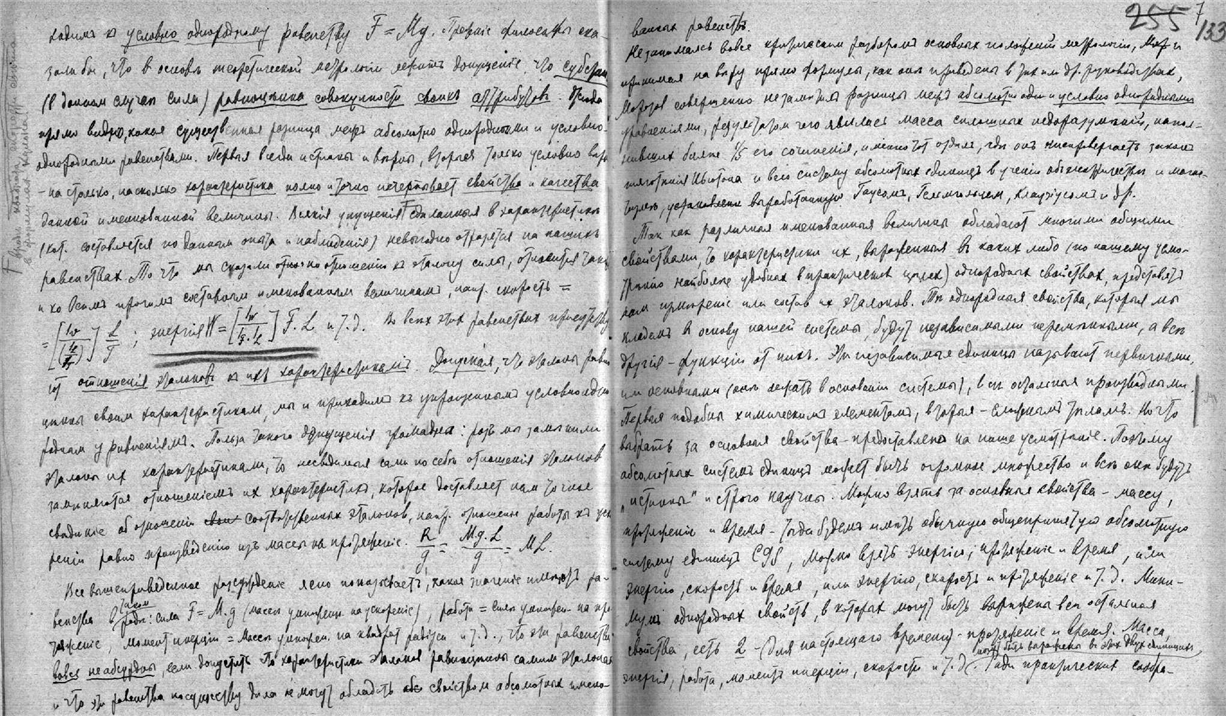 ходимъ къ условно однородному равенству F = Mg. Прежніе философы ска-
зали бы, что въ основѣ теоретической метрологіи лежитъ допущеніе, что субстан
(въ данномъ случаѣ сила) равноцѣнна совокупности своихъ аттрибутовъ.
прямо видно, какая существенная разница между абсолютно однородными и условно-
однородными равенствами. Первыя всегда истинны и вѣрны, вторыя только условно вѣр
- на столько, насколько характеристика полно и точно исчерпываетъ свойства и качества
данной именованной величины. Всякія упущенія сдѣланныя въ характеристикѣ
(кот. составляется по даннымъ опыта и наблюденія) невыгодно отразятся на нашихъ
равенствахъ. То что мы сказали относительно отношенія къ эталону силы, относится так
и ко всѣмъ прочимъ составнымъ именованнымъ величинамъ, напр. скорость =
= L/T ; энергія W = F. L и т.д. Во всѣхъ этихъ равенствахъ присутству
ютъ отношенія эталоновъ къ ихъ характеристикамъ. Допуская, что эталоны равно
цѣнны своимъ характеристикамъ, мы и приходимъ къ упрощеннымъ условно одно
роднымъ уравненіямъ. Польза такого допущенія громадна: разъ мы замѣнили
эталоны ихъ характеристиками, то несводимыя сами по себѣ отношенія эталоновъ
замѣняются отношеніемъ ихъ характеристикъ, которое доставляетъ намъ точное
свѣдѣніе объ отношеніи соотвѣтственныхъ эталоновъ, напр. отношеніе работы къ уско
ренію равно произведенію изъ массы на протяженіе. R/g = Mg.L/g = ML
Все вышеприведенное разсужденіе ясно показываетъ, какое значеніе имѣютъ ра-
венства такого рода: сила F = M.g (масса умножен. на ускореніе), работа = сила умножен. на про
тяженіе, моментъ инерціи = массы умножен. на квадратъ радіуса и т.д., что эти равенства
вовсе не абсурдны, если допустить что характеристики эталоновъ равноцѣнны самимъ эталонам
и что эти равенства по существу дѣла не могутъ обладать свойствомъ абсолютныхъ имено-
255 7
133
ванныхъ равенствъ.
Не занимаясь вовсе критическимъ разборомъ основныхъ положеній метрологіи, и
принимая на вѣру прямо формулы, какъ онѣ приведены въ томъ или др. руководствахъ,
Морозовъ совершенно не замѣтилъ разницы между абсолютно одн. и условно однородными
уравненіями, результатомъ чего явилась масса сплошныхъ недоразумѣній, напол-
нившихъ болѣе 1/5 его сочиненія, именно тотъ отдѣлъ, гдѣ онъ ниспровергаетъ законъ
тяготѣнія Ньютона и всю систему абсолютныхъ единицъ въ ученіи объ электричествѣ и магне-
тизмѣ, выработанную Гаусомъ, Гельмгольцемъ, Клаузіусомъ и др.
Такъ какъ различныя именованныя величины обладаютъ многими общими
свойствами, то характеристики ихъ, выраженныя въ какихъ либо (по нашему усмо-
трѣнію наиболѣе удобныхъ въ практическихъ цѣляхъ) однородныхъ свойствахъ, представятъ
намъ измѣреніе или составъ ихъ эталоновъ. Тѣ однородныя свойства, которыя мы
кладемъ въ основу нашей системы, будутъ независимыми перемѣнными, а всѣ
другія - функціи отъ нихъ. Эти независимыя единицы называютъ первичными,
или основными (онѣ лежатъ въ основаніи системы), всѣ остальныя производными.
Первыя подобны химическимъ элементамъ, вторыя - сложнымъ тѣламъ. Но что
выбрать за основныя свойства - предоставлено на наше усмотрѣніе. Поэтому
абсолютныхъ системъ единицъ можетъ быть огромное множество и всѣ онѣ будутъ
„истинны" и строго научны. Можно взять за основныя свойства - массу,
протяженіе и время - тогда будемъ имѣть обычную общепринятую абсолютную
систему единицъ CGS, можно взять энергію, протяженіе и время, или
энергію, скорость и время, или энергію, скорость и протяженіе и т.д. Мини-
мумъ однородныхъ свойствъ, въ которыхъ могутъ быть выражены всѣ остальныя
свойства, есть 2 - для настоящаго времени - протяженіе и время. Масса,
могутъ быть выражены въ этихъ двухъ единицахъ
энергія, работа, моментъ инерціи, скорости и т.д. Ради практическихъ сообра-